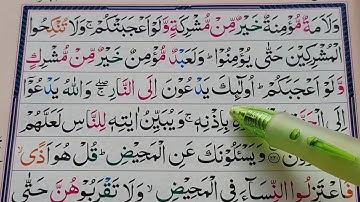 وَلَاَمَةٌ مُّؤْمِنَةٌ خَيْرٌ مِّنْ مُّشْرِكَةٍ وَّلَوْ اَعْجَبَتْكُمْ ۚ وَلَا تُنْكِحُوا
الْمُشْرِكِيْنَ حَتّٰى يُؤْمِنُوْا ؕ وَلَعَبْدٌ مُّؤْمِنٌ خَيْرٌ مِّنْ مُّشْرِكٍ
وَّلَوْ اَعْجَبَكُمْ ؕ اُولٰٓئِكَ يَدْعُوْنَ اِلَى النَّارِ ۖۚ وَاللّٰهُ يَدْعُوْٓا
اِلَى بِاِذْنِهٖ ۚ وَيُبَيِّنُ اٰيٰتِهٖ لِلنَّاسِ لَعَلَّهُمْ
وَيَسْـَٔلُوْنَكَ عَنِ الْمَحِيْضِ ؕ قُلْ هُوَ اَذًى ۙ
فَاعْتَزِلُوا النِّسَآءَ فِى الْمَحِيْضِ ۙ وَلَا تَقْرَبُوْهُنَّ حَتّٰى